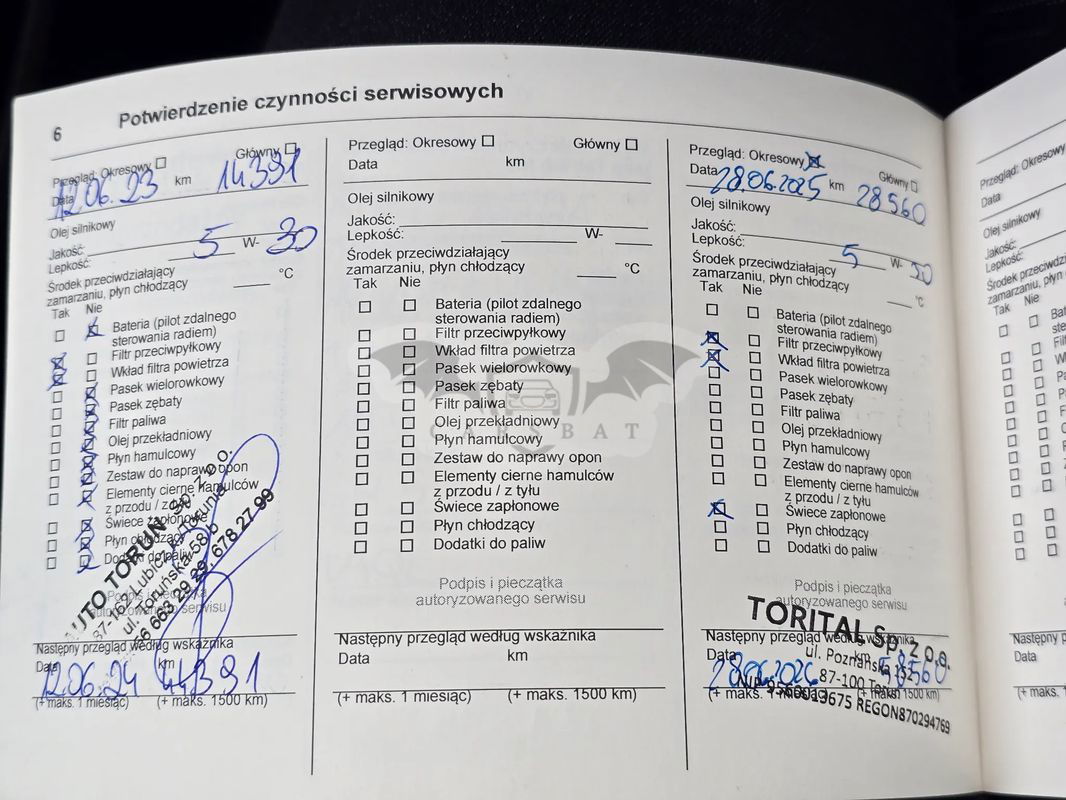 6 Potwierdzenie czynności serwisowych
Przegląd: Okresowy Główny
Data 12.06.23 km 14391
Olej silnikowy
Jakość:
Lepkość: 5 W- 30
Środek przeciwdziałający
zamarzaniu, płyn chłodzący °C
Tak Nie
Bateria (pilot zdalnego
sterowania radiem)
Filtr przeciwpyłkowy
Wkład filtra powietrza
Pasek wielorowkowy
Pasek zębaty
Filtr paliwa
Olej przekładniowy
Płyn hamulcowy
Zestaw do naprawy opon
Elementy cierne hamulców
z przodu / z tyłu
Świece zapłonowe
Płyn chłodzący
Dodatki do paliw
AUTO TORUŃ Sp. z o.o.
87-162 Lubicz k. Torunia
ul. Toruńska 58 b
56 663 29 29, 678 27 99
Następny przegląd według wskaźnika
Data km
12.06.24 44391
(+ maks. 1 miesiąc) (+ maks. 1500 km)
Przegląd: Okresowy Główny
Data km
Olej silnikowy
Jakość:
Lepkość: W-
Środek przeciwdziałający
zamarzaniu, płyn chłodzący °C
Tak Nie
Bateria (pilot zdalnego
sterowania radiem)
Filtr przeciwpyłkowy
Wkład filtra powietrza
Pasek wielorowkowy
Pasek zębaty
Filtr paliwa
Olej przekładniowy
Płyn hamulcowy
Zestaw do naprawy opon
Elementy cierne hamulców
z przodu / z tyłu
Świece zapłonowe
Płyn chłodzący
Dodatki do paliw
CARSBAT
Podpis i pieczątka
autoryzowanego serwisu
Następny przegląd według wskaźnika
Data km
(+ maks. 1 miesiąc) (+ maks. 1500 km)
Przegląd: Okresowy Główny
Data 28.06.2025 km 28560
Olej silnikowy
Jakość:
Lepkość: 5 W- 30
Środek przeciwdziałający
zamarzaniu, płyn chłodzący °C
Tak Nie
Bateria (pilot zdalnego
sterowania radiem)
Filtr przeciwpyłkowy
Wkład filtra powietrza
Pasek wielorowkowy
Pasek zębaty
Filtr paliwa
Olej przekładniowy
Płyn hamulcowy
Zestaw do naprawy opon
Elementy cierne hamulców
z przodu / z tyłu
Świece zapłonowe
Płyn chłodzący
Dodatki do paliw
Podpis i pieczątka
autoryzowanego serwisu
TORITAL Sp. z o.o.
ul. Poznańska
87-100 Toruń
REGON870294769
Następny przegląd według wskaźnika
Data km
28.06.2026 58560
(+ maks. 1500 km)
Przegląd: Okresowy
Data
Olej silnikowy
Jakość:
Lepkość:
Środek
zamarzaniu,
Tak Nie
Następny
Data
(+ maks. 1